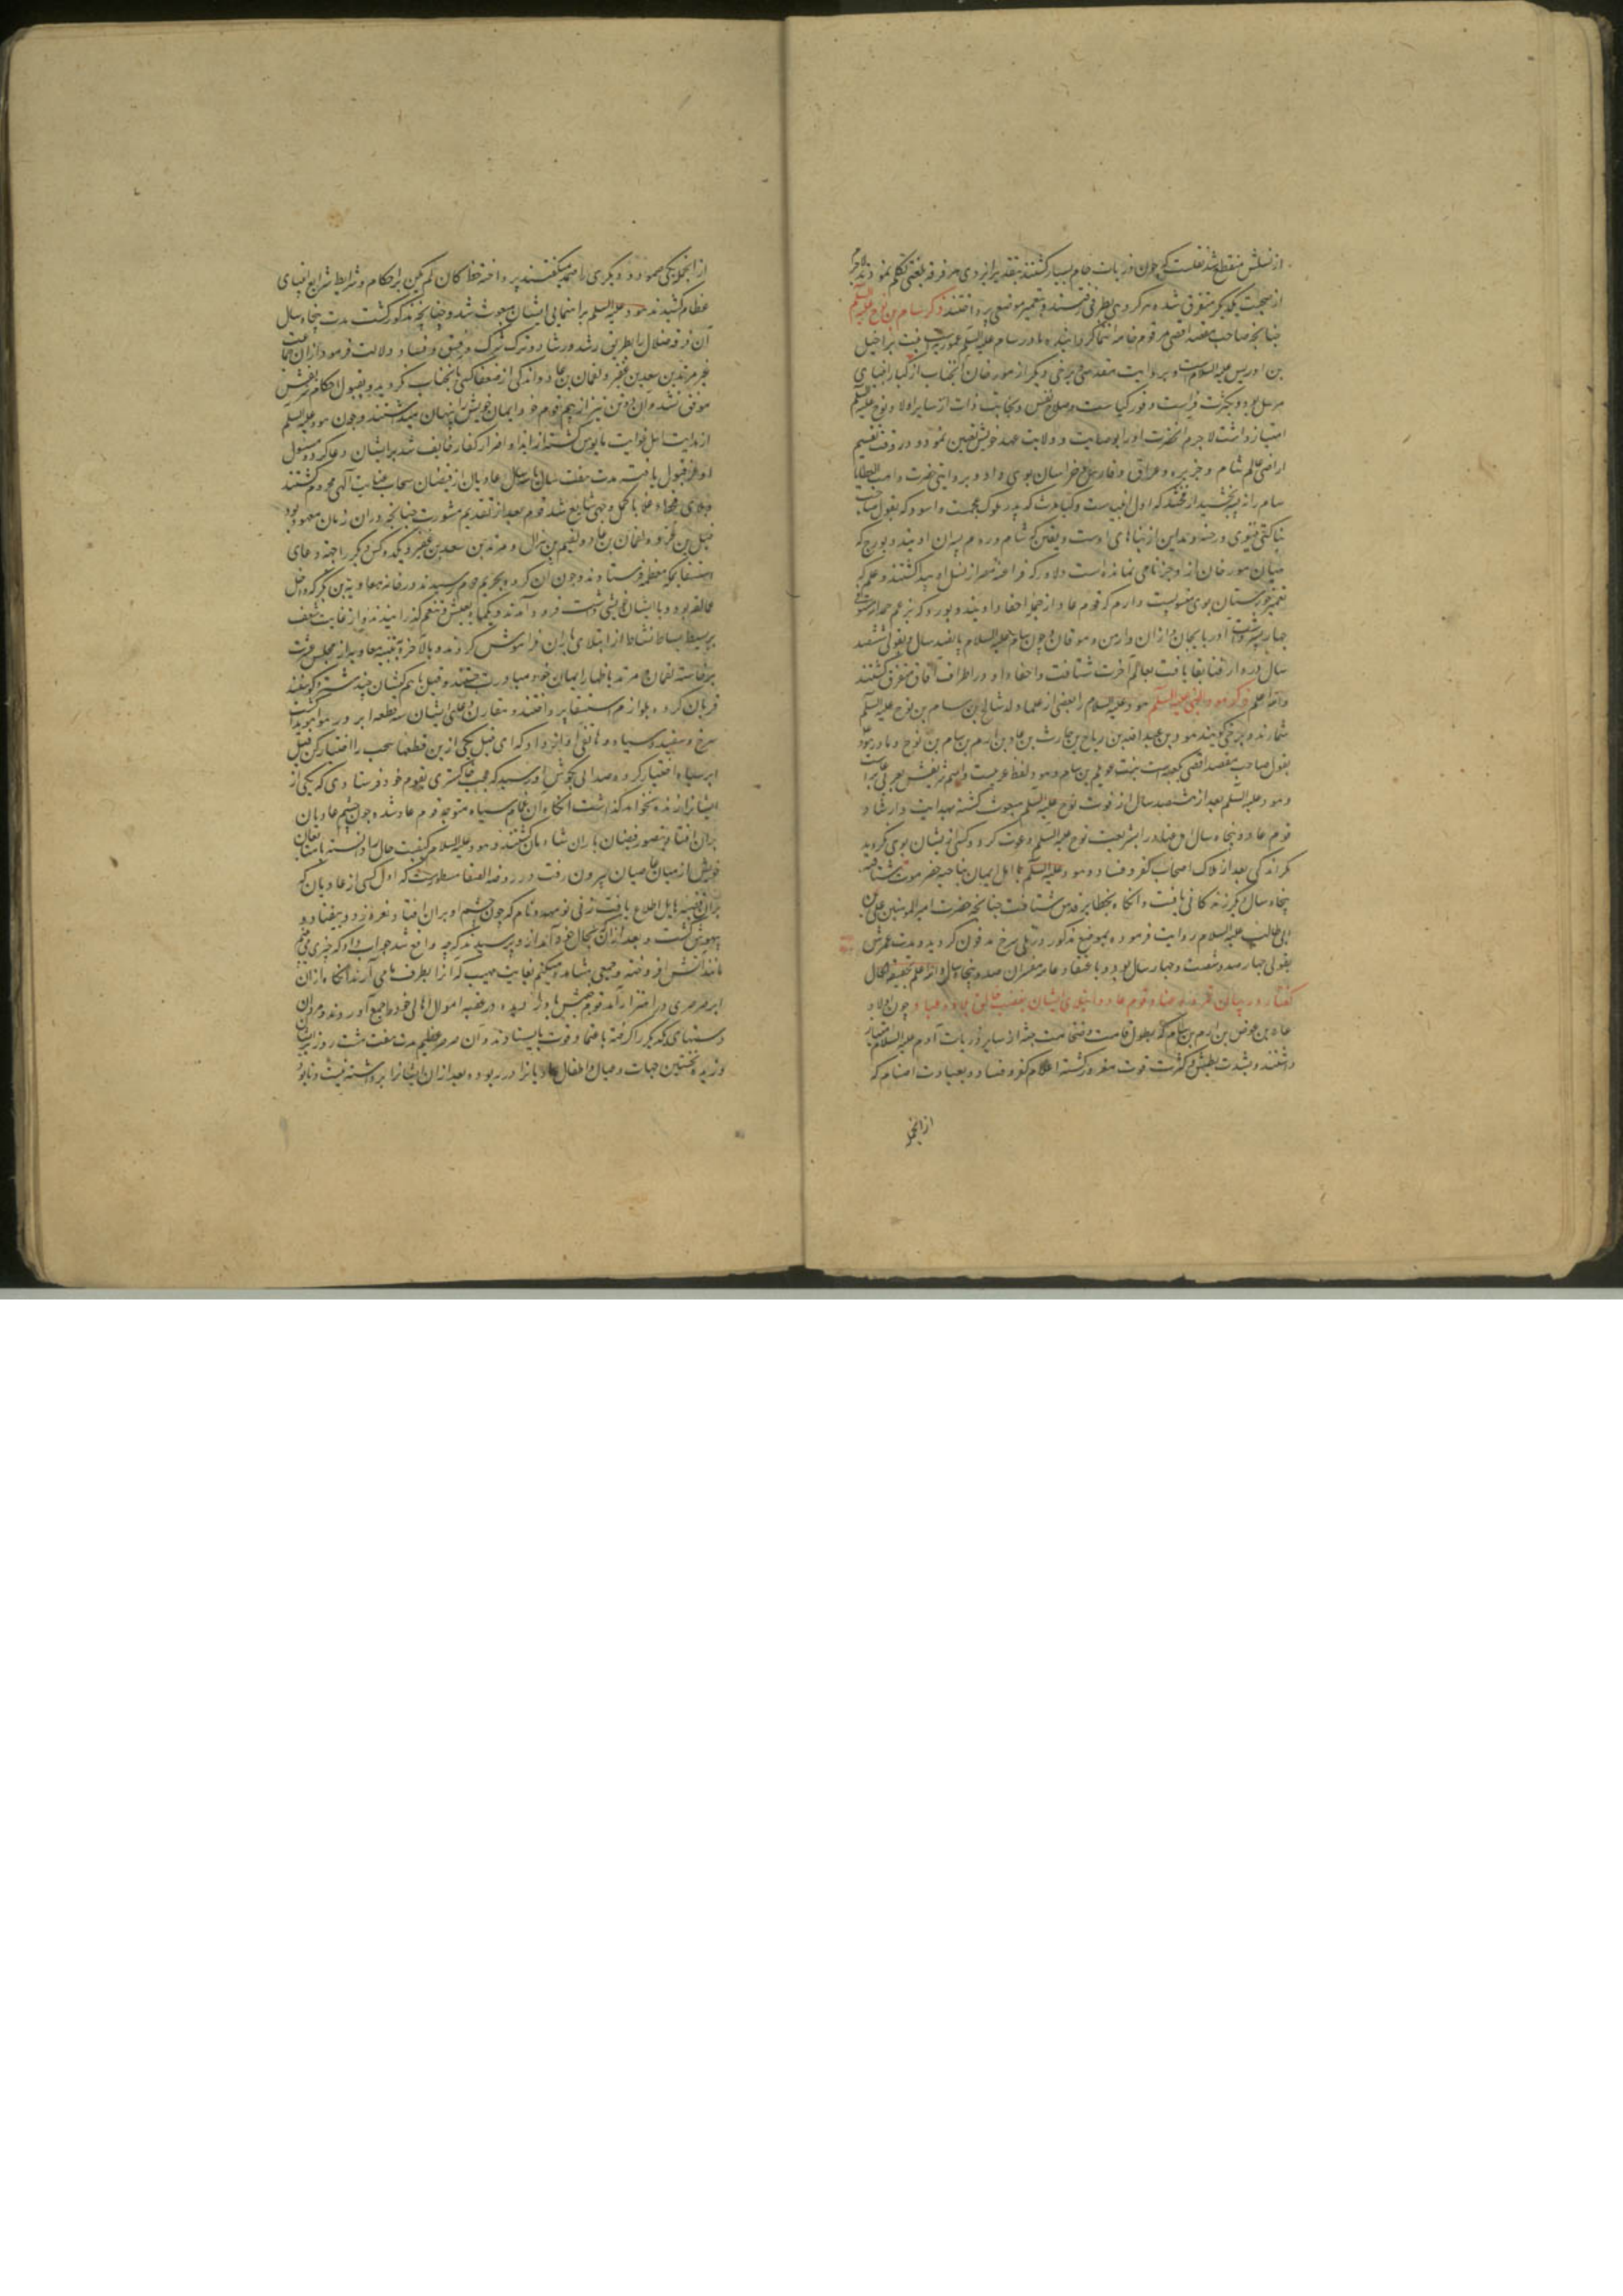 از نسلش منقطع شد نقلست که چون ذریات حام بسیار کشتند بتقدیر ایزدی هر فرقه بلغتی تکلم نمودند لاجرم
از صحبت یکدیکر متفرق شده هر کروهی بطرفی رفتند و بتعمیر موضعی پرداختند ذکر سام بن نوح علیه السلم
چنانچه صاحب مقصد اقصی مرقوم خامه انتما کردانیده مادر سام علیه السلم عموریه بنت براخیل
بن ادریس علیه السلام است و بروایت مقدسی و برخی دیکر از مورخان آنجناب از کبار انبیای
مرسل بود و بکثرت فراست و وفور کیاست و صلاح نفس و نجابت ذات از سایر اولاد نوح علیه السلم
امتیاز داشت لاجرم آنحضرت او را بوصایت و ولایت عهد خویش تعیین نمود و در وقت تقسیم
اراضی عالم شام و جزیره و عراق و فارس و خراسان بوی داد و بروایتی حضرت واهب العطایا
سام را نه پسر بخشید ارفخشد که اول انبیاست و کیومرث که پدر ملوک عجمست و اسود که بقول صاحب
بناکتی نینوی و رحبه و مداین از بناهای اوست و یفن که شام و روم پسران اویند و بورج که
میان مورخان ازو جز نامی نمانده است و لاود که فراعنه مصر از نسل او پیدا کشتند و عیلم که
تعمیر خوزستان بوی منسوبست و ارم که قوم عاد از جمله احفاد اویند و بورد که بزعم حمدالله مستوفی
چهار پسر داشت آذربایجان و اران و ارمن و موقان و چون سام علیه السلام پانصد سال و بقولی ششصد
سال در دار فنا بقا یافت بعالم آخرت شتافت و احفاد او در اطراف آفاق متفرق کشتند
والله اعلم ذکر هود النبی علیه السلم هود علیه السلام را بعضی از علما ولد شالخ بن سام بن نوح علیه السلم
شمارند و برخی کویند هود بن عبدالله بن رباح بن حارث بن عاد بن ارم بن سام بن نوح و مادر هود
بقول صاحب مقصد اقصی بکعبه است بنت عویلم بن سام و هود لفظ عربیست و اسم شریفش بعبری عابر است
و هود علیه السلم بعد از هشتصد سال از فوت نوح علیه السلم مبعوث کشته بهدایت و ارشاد
قوم عاد و پنجاه سال اهل ضلال را بشریعت نوح علیه السلم دعوت کرد و کسی از ایشان بوی نکروید
مکر اندکی بعد از هلاک اصحاب کفر و فساد و هود علیه السلم با اهل ایمان بناحیه حضرموت شتافته
پنجاه سال دیکر زندکانی یافت و آنکاه بحظایر قدس شتافت چنانچه حضرت امیر المومنین علی بن
ابی طالب علیه السلام روایت فرموده بموضع مذکور در تلی سرخ مدفون کردید و مدت عمرش
بقولی چهارصد و شصت و چهار سال بود و باعتقاد عامه مفسران صد و پنجاه سال والله اعلم بحقیقة الحال
کفتار در بیان قوم عاد و ابتلای ایشان بغضب خالق بلاد و عباد چون اولاد
عاد بن عوض بن ارم بن سام که بطول قامت و ضخامت جثه از سایر ذریات آدم علیه السلام امتیاز
داشتند و بشدت بطش و کثرت قوت مغرور کشته اعلام کفر و فساد و بعبادت اصنام که
از انجمله
از انجمله یکی صمود و دیکری را صمد میکفتند پرداخته خط کان لم یکن بر احکام و شرایط شرایع انبیای
عظام کشیدند هود علیه السلم براهنمایی ایشان مبعوث شد و چنانچه مذکور کشت مدت پنجاه سال
آن فرقه ضلال را بطریق رشد و رشاد و ترک شرک و فسق و فساد دلالت فرمود از ان جماعت
غیر مرثد بن سعد بن عفیر و لقمان بن عاد و اندکی از ضعفا کسی بانجناب نکروید و بقبول احکام شریعتش
موفق نشد و آن دو تن نیز از بیم قوم خود ایمان خویش را پنهان میداشتند و چون هود علیه السلم
از هدایت اهل غوایت مایوس کشته از ایذا و اضرار کفار خایف شد بر ایشان دعا کرد و مسئول
او عز قبول یافته مدت هفت سال یا سه سال عادیان از فیضان سحاب عنایت آلهی محروم کشتند
و بلای قحط و غلا باکمل وجهی شایع شد قوم بعد از تقدیم مشورت چنانچه در ان زمان معهود بود
قیل بن عنز و لقمان بن عاد و لقیم بن هزال و مرثد بن سعد بن عفیر و یکدو کس دیکر را جهة دعای
استسقا بمکه معظمه فرستادند و چون آن کروه بحریم حرم رسیدند در خانه معاویه بن بکر که داخل
عمالقه بود و با ایشان خویشی داشت فرود آمدند و یکماه بعیش و تنعم کذرانیدند و از غایت شعف
بر بسیط بساط نشاط از ابتلای یاران فراموش کردند و بالاخره بتنبیه معاویه از مجلس عشرت
برخاسته لقمان و مرثد باظهار ایمان خود مبادرت جستند و قیل با هم کیشان چند شتر و کوسفند
قربان کرده بلوازم استسقا پرداختند و مقارن دعای ایشان سه قطعه ابر در هوا هویدا کشت
سرخ و سفید و سیاه و هاتفی آواز داد که ای قیل یکی ازین قطعهای سحب را اختیار کن قیل
ابر سیاه اختیار کرد و صدایی بکوش او رسید که عجب خاکستری بقوم خود فرستادی که یکی از
ایشان را زنده نخواهد کذاشت آنکاه آن غمام سیاه متوجه قوم عاد شده چون چشم عادیان
بران افتاد بتصور فیضان باران شادمان کشتند و هود علیه السلام کیفیت حال را دانسته با متابعان
خویش از میان عاصیان بیرون رفت و در روضه الصفا مسطورست که اول کسی از عادیان که
بران قضیه هایل اطلاع یافت زنی بود مهدد نام که چون چشم او بران افتاد نعره زد و بیفتاد و
بیهوش کشت و بعد از ان که بحال خود آمد ازو پرسیدند که چه واقع شد جواب داد که چیزی می بینم
مانند آتش افروخته و جمعی مشاهده میکنم بغایت مهیب که آنرا بطرف ما می آرند آنکاه از ان
ابر صرصری در اهتزاز آمد قوم پیش باد باز دویده در عقبه اموال و اهالی خود را جمع آوردند و مردان
دستهای یکدیکر را کرفته باعتماد قوت بایستادند و آن صرصر عظیم مدت هفت شب و هشت روز بر ایشان
وزید و نخستین جهات و عیال و اطفال عادیان را در ربوده بعد از ان ایشان را برداشته نیست و نابود